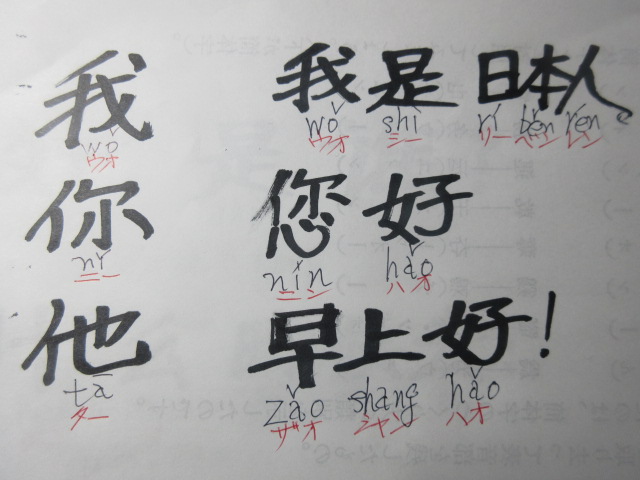 我 我是日本人。
wǒ wǒ shì rí běn rén
ウオ ウオ シー リー ベン レン
你 您好
nǐ nín hǎo
ニー ニン ハオ
他 早上好！
tā zǎo shang hǎo
ター ザオ シャン ハオ